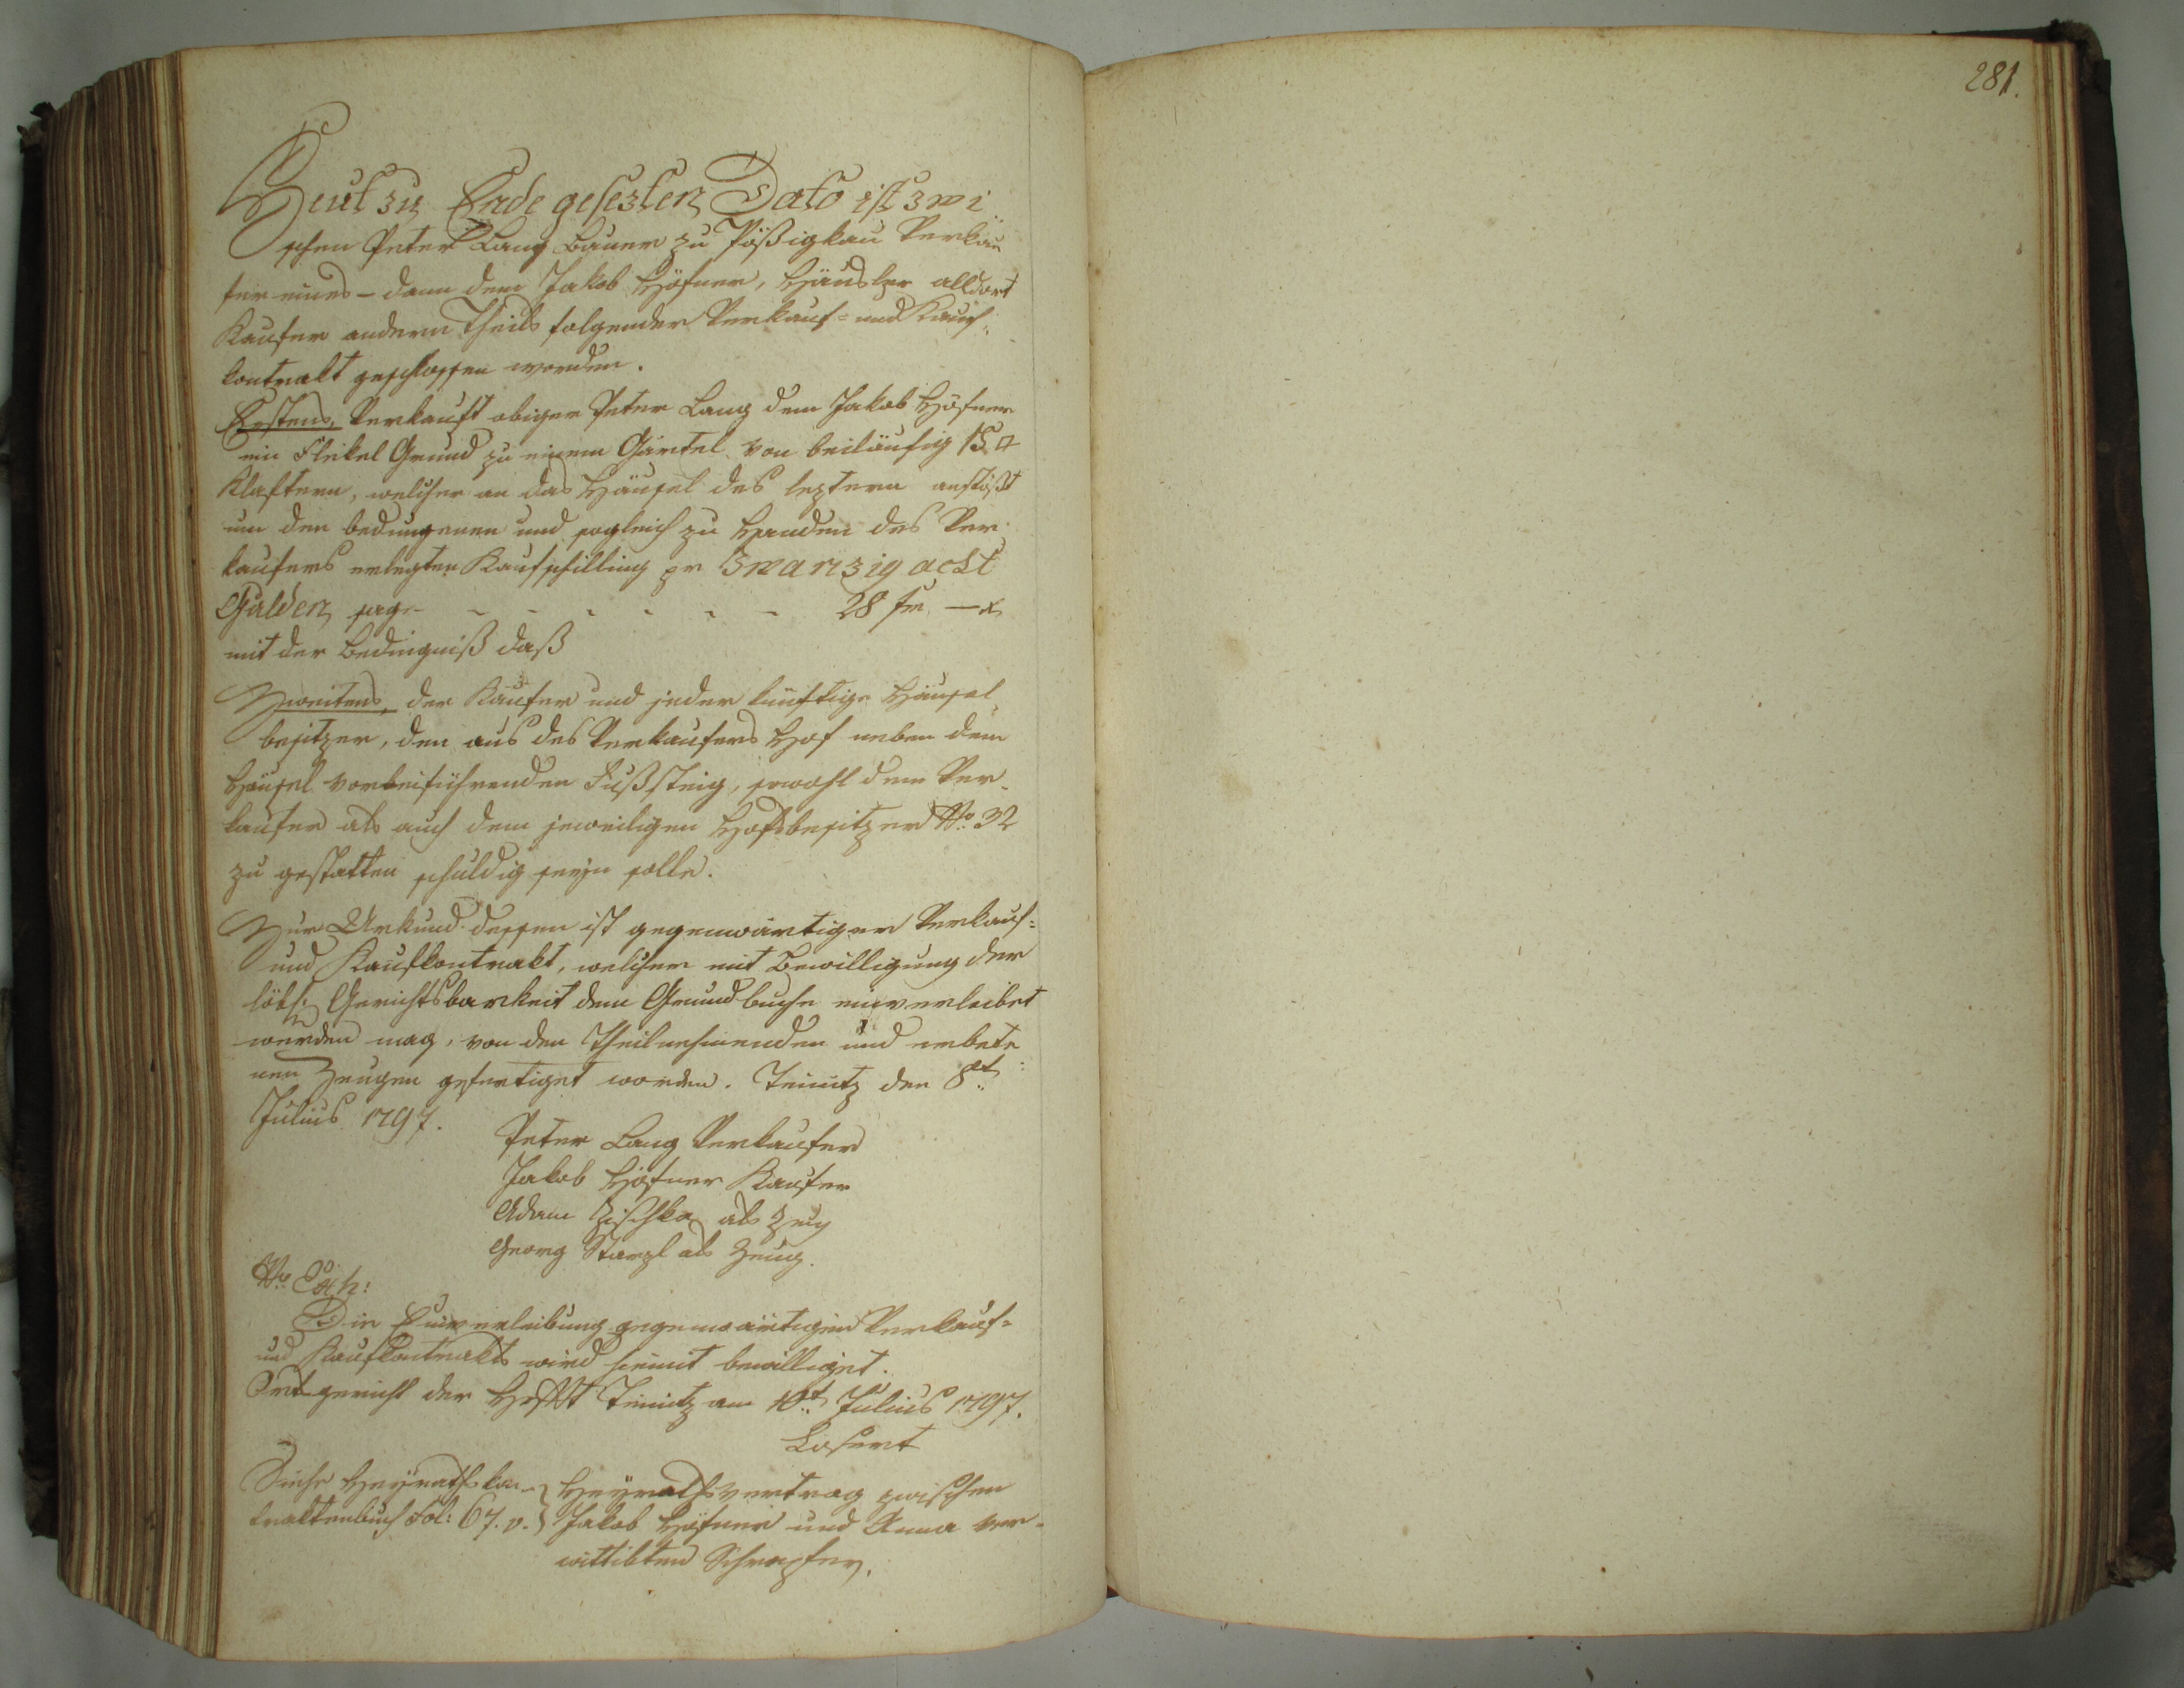 281.
Heut zu Ende gesezten Dato ist zwi
schen Peter Lang Bauer zu Pößigkau Verkäu
fer eines – dann dem Jakob Höfner, Häusler alldort
Kaufer andern Theils folgender Verkauf- und Kauf-
kontrakt geschlossen worden.
Erstens, Verkauft obiger Peter Lang dem Jakob Höfner
ein Flekel Grund zu einem Gärtel von beiläufig 15 □
Klaftern, welcher an das Häusel des leztern anstößt
um den bedungenen und sogleich zu Handen des Ver
kaufers erlegten Kaufschilling pr Zwanzig acht
Gulden sage - - - - - - 28 f — x
mit der Bedingniß daß
Zweitens, der Käufer und jeder künftige Häusel
besitzer, den aus des Verkaufers Hof neben dem
Häusel vorbeiführenden Fußsteig, sowohl dem Ver-
kaufer als auch dem jeweiligen Hofsbesitzer No. 32
zu gestatten schuldig seyn solle.
Zur Urkund dessen ist gegenwärtiger Verkauf-
und Kaufkontrakt, welcher mit Bewilligung der
löbl: Gerichtsbarkeit dem Grundbuche einverleibet
werden mag, von den Theilnehmenden und erbete
nen Zeugen gefertiget worden. Teinitz den 8t:
Julius 1797.
Peter Lang Verkaufer
Jakob Höfner Kaufer
Adam Zischka als Zeug
Georg Stangl als Zeug.
No. Exh:
Die Einverleibung gegenwärtigen Verkauf-
und Kaufkontrakts wird hiemit bewilliget.
Ortgericht der Hft Teinitz am 10t. Julius 1797.
Losert
Siehe Heyrathskon- } Heyrathsvertrag zwischen
traktenbuch Fol: 67. v. } Jakob Höfner und Anna ver-
wittibten